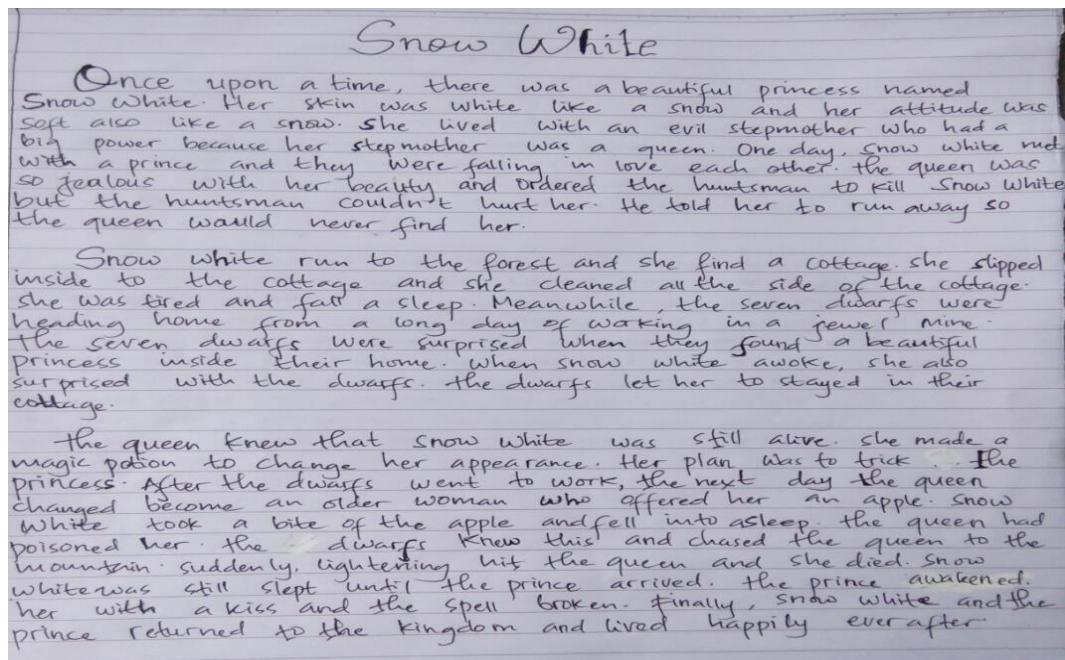 Snow White
Once upon a time, there was a beautiful princess named
Snow White. Her skin was white like a snow and her attitude was
soft also like a snow. She lived with an evil stepmother who had a
big power because her stepmother was a queen. One day, snow white met
with a prince and they were falling in love each other. the queen was
so jealous with her beauty and ordered the huntsman to kill Snow White
but the huntsman couldn't hurt her. He told her to run away so
the queen would never find her.
Snow white run to the forest and she find a cottage. she slipped
inside to the cottage and she cleaned all the side of the cottage.
she was tired and fall a sleep. Meanwhile, the seven dwarfs were
heading home from a long day of working in a jewel mine.
the seven dwarfs were surprised when they found a beautiful
princess inside their home. when snow white awoke, she also
surprised with the dwarfs. the dwarfs let her to stayed in their
cottage.
the queen knew that snow white was still alive. she made a
magic potion to change her appearance. Her plan was to trick . . the
princess. After the dwarfs went to work, the next day the queen
changed become an older woman who offered her an apple. snow
white took a bite of the apple and fell into asleep. the queen had
poisoned her. the dwarfs knew this and chased the queen to the
mountain. suddenly, lightening hit the queen and she died. snow
white was still slept until the prince arrived. the prince awakened.
her with a kiss and the spell broken. Finally, snow white and the
prince returned to the kingdom and lived happily ever after.